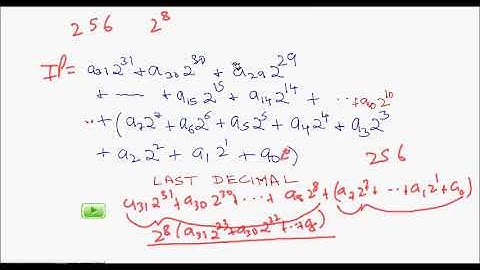 256 2⁸
IP = a₃₁2³¹ + a₃₀2³⁰ + a₂₉2²⁹
+ ---- + a₁₅2¹⁵ + a₁₄2¹⁴ + ... +a₁₀2¹⁰
.. + (a₇2⁷ + a₆2⁶ + a₅2⁵ + a₄2⁴ + a₃2³
+ a₂2² + a₁2¹ + a₀2⁰)
256
LAST DECIMAL
a₃₁2³¹ + a₃₀2³⁰ + ... + a₈2⁸ + (a₇2⁷ + ... + a₁2¹ + a₀)
2⁸(a₃₁2²³ + a₃₀2²² + ... + a₈)